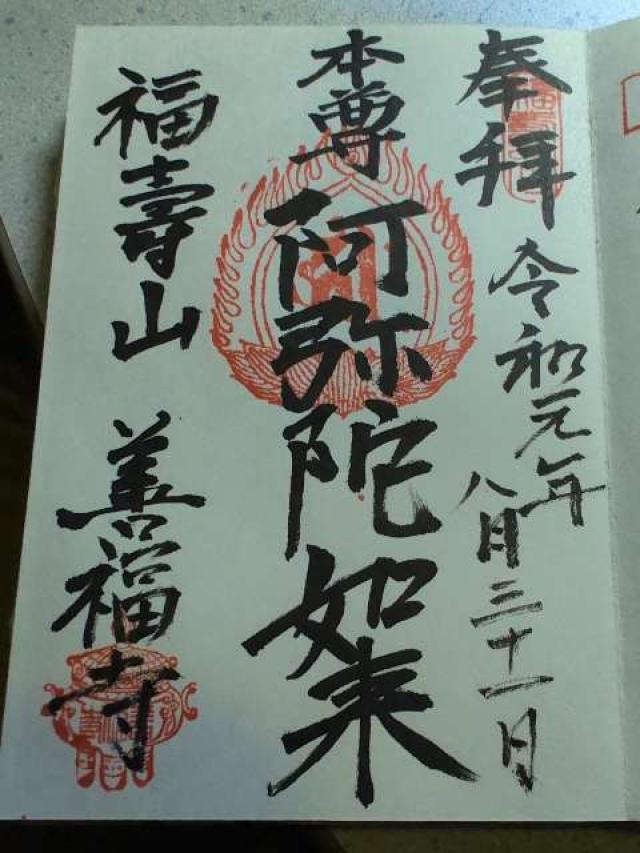 奉拝
令和元年
八月三十一日
本尊 阿弥陀如来
福壽山 善福寺